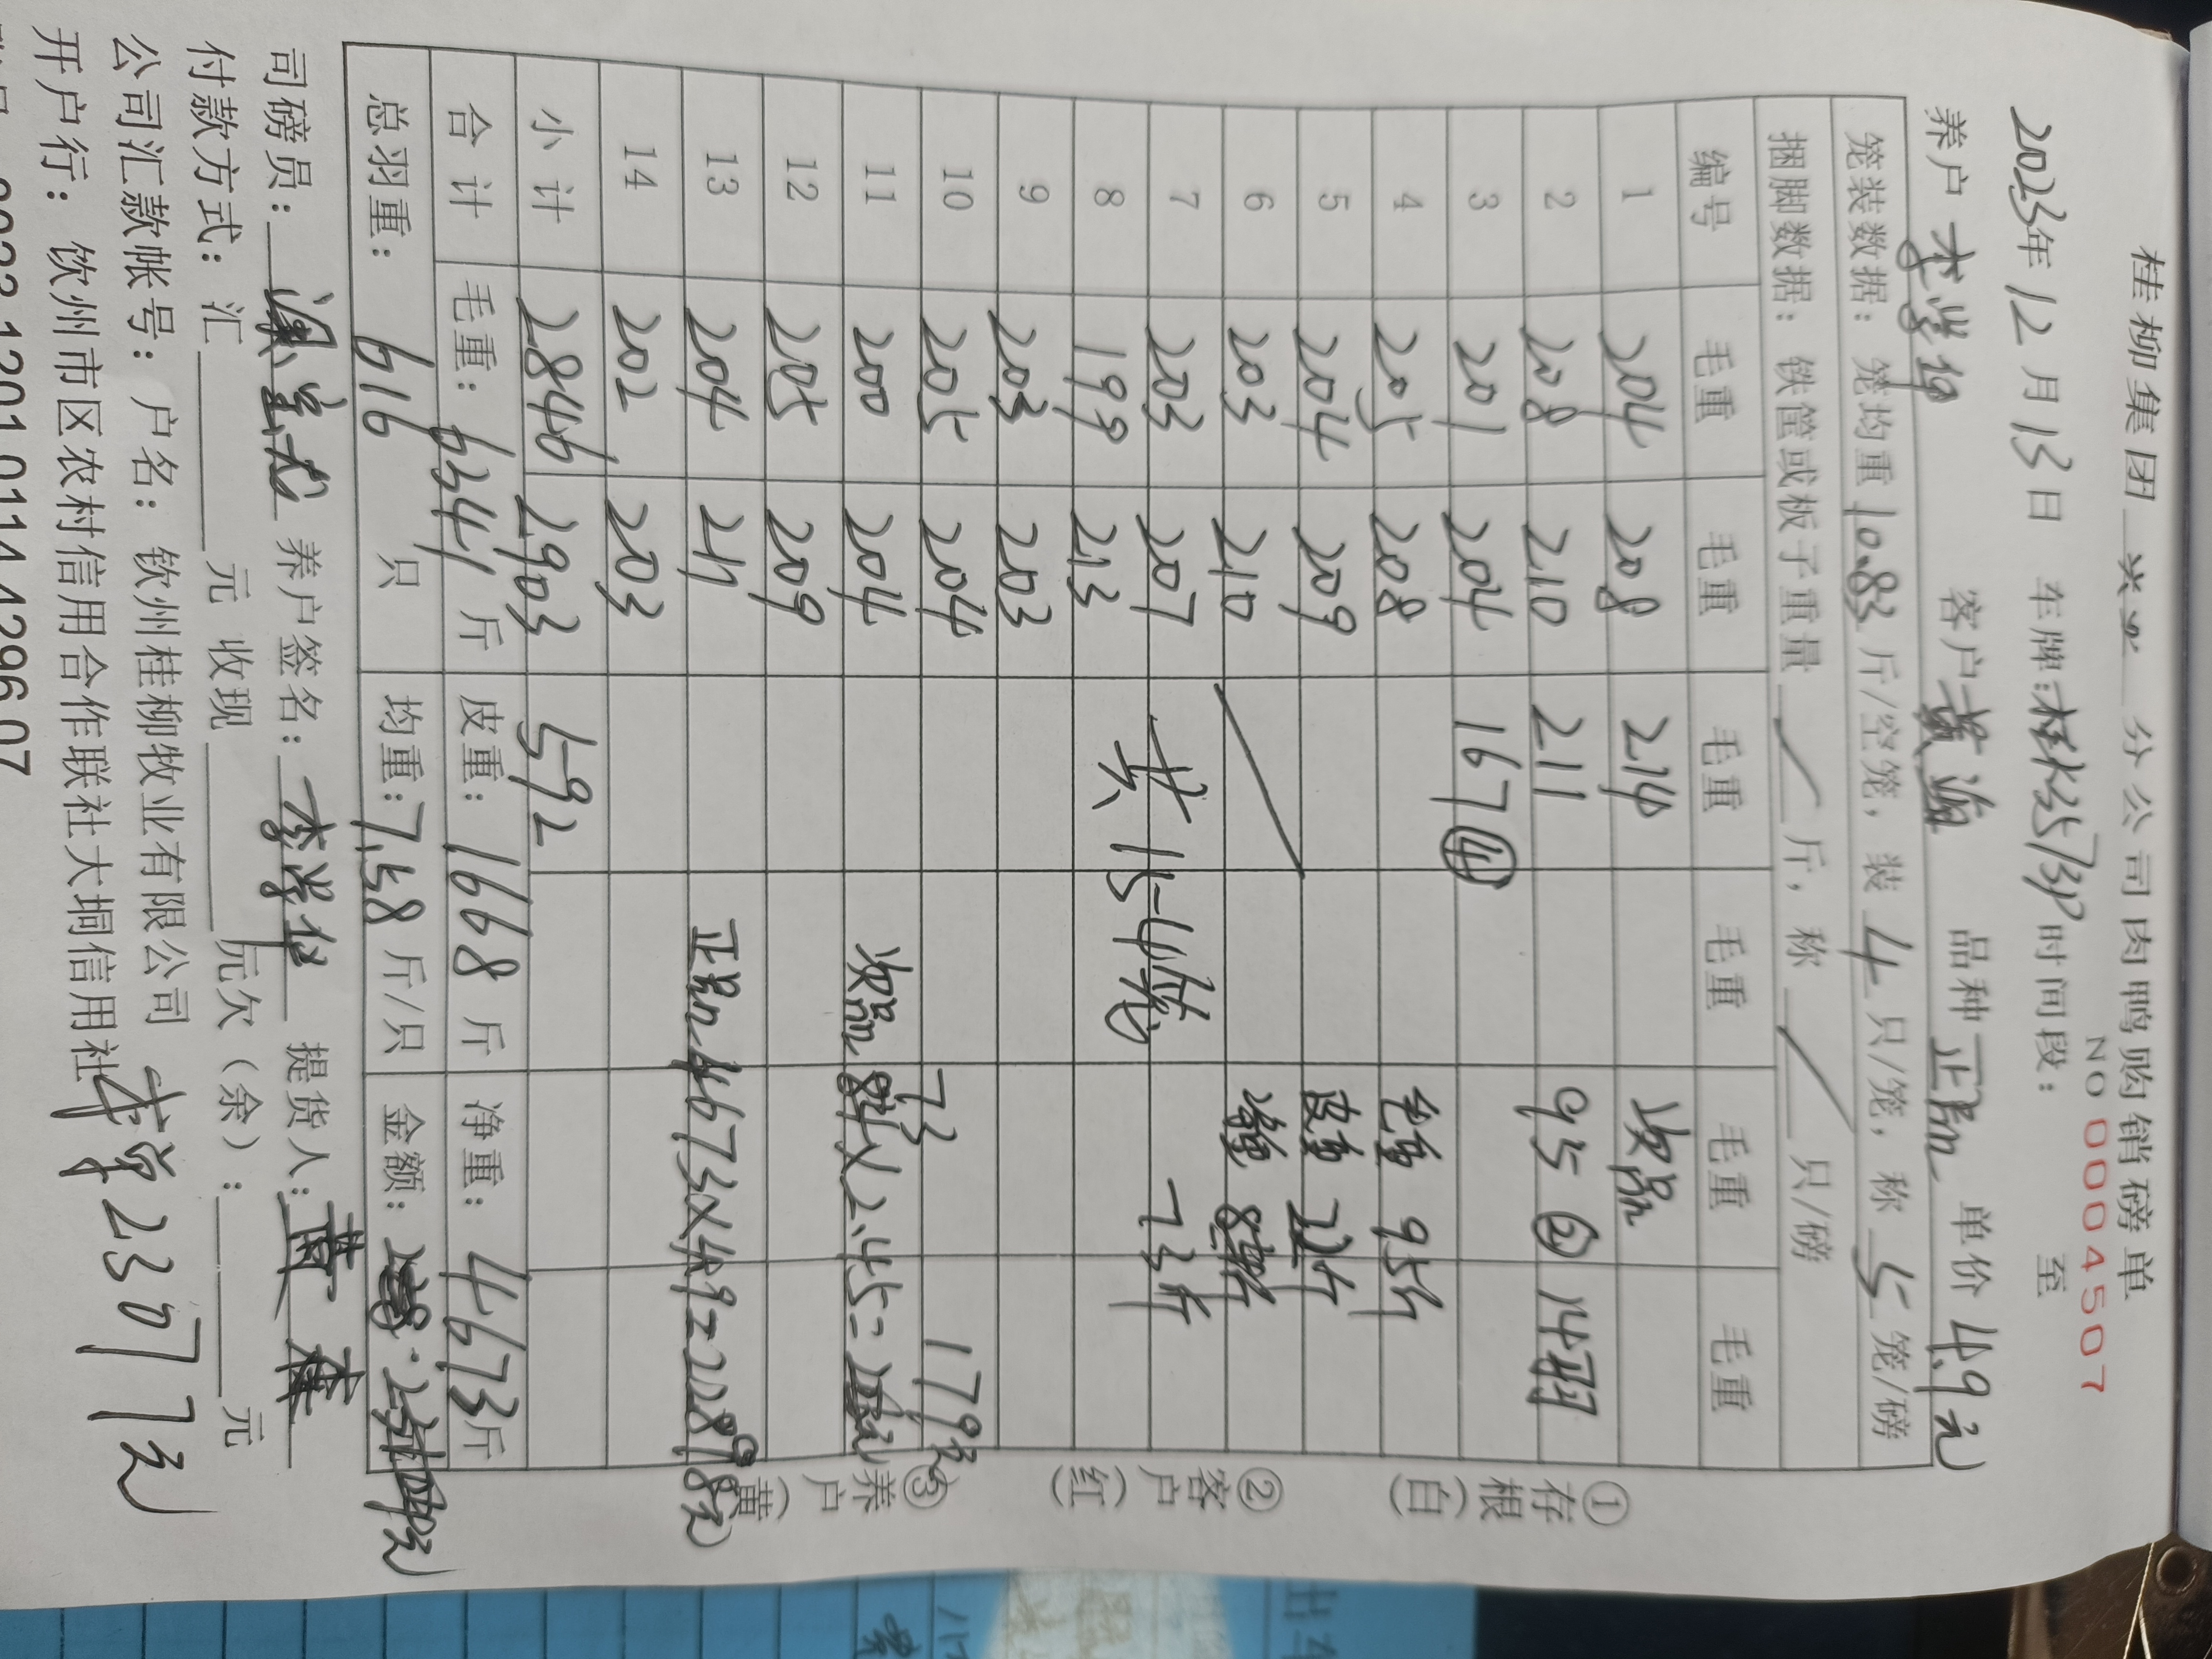 桂柳集团 分公司肉鸭购销磅单
NO 0004507
2023年12月13日 车牌: 时间段: 至
养户 李学 客户 黄 品种 正品 单价 4.9元
笼装数据: 笼均重 10.83 斤/空笼, 装 4 只/笼, 称 5 笼/磅
捆脚数据: 铁筐或板子重量 / 斤, 称 / 只/磅
编号 毛重 毛重 毛重 毛重 毛重 毛重
1 204 208 214 次品
2 208 210 211 95 ② 14羽
3 201 204 167 ④
4 205 208 毛重 95斤
5 204 209 皮重 22斤
6 203 210 净重
7 203 207 共154笼 73斤
8 199 213
9 203 203
10 205 204 73 179元
11 200 204 次品 ×2.45=
12 205 209
13 204 211 正品 4673×4.9=22898元
14 202 203
小计 2846 2903 592
合计 毛重: 6341 斤 皮重: 1668 斤 净重: 4673 斤
总羽重: 616 只 均重: 7.58 斤/只 金额:
司磅员: 养户签名: 李学 提货人: 黄
付款方式: 汇 元 收现 元欠(余): 元
公司汇款帐号: 户名: 钦州桂柳牧业有限公司
开户行: 钦州市区农村信用合作联社大垌信用社
23077元
①存根(白)
②客户(红)
③养户(黄